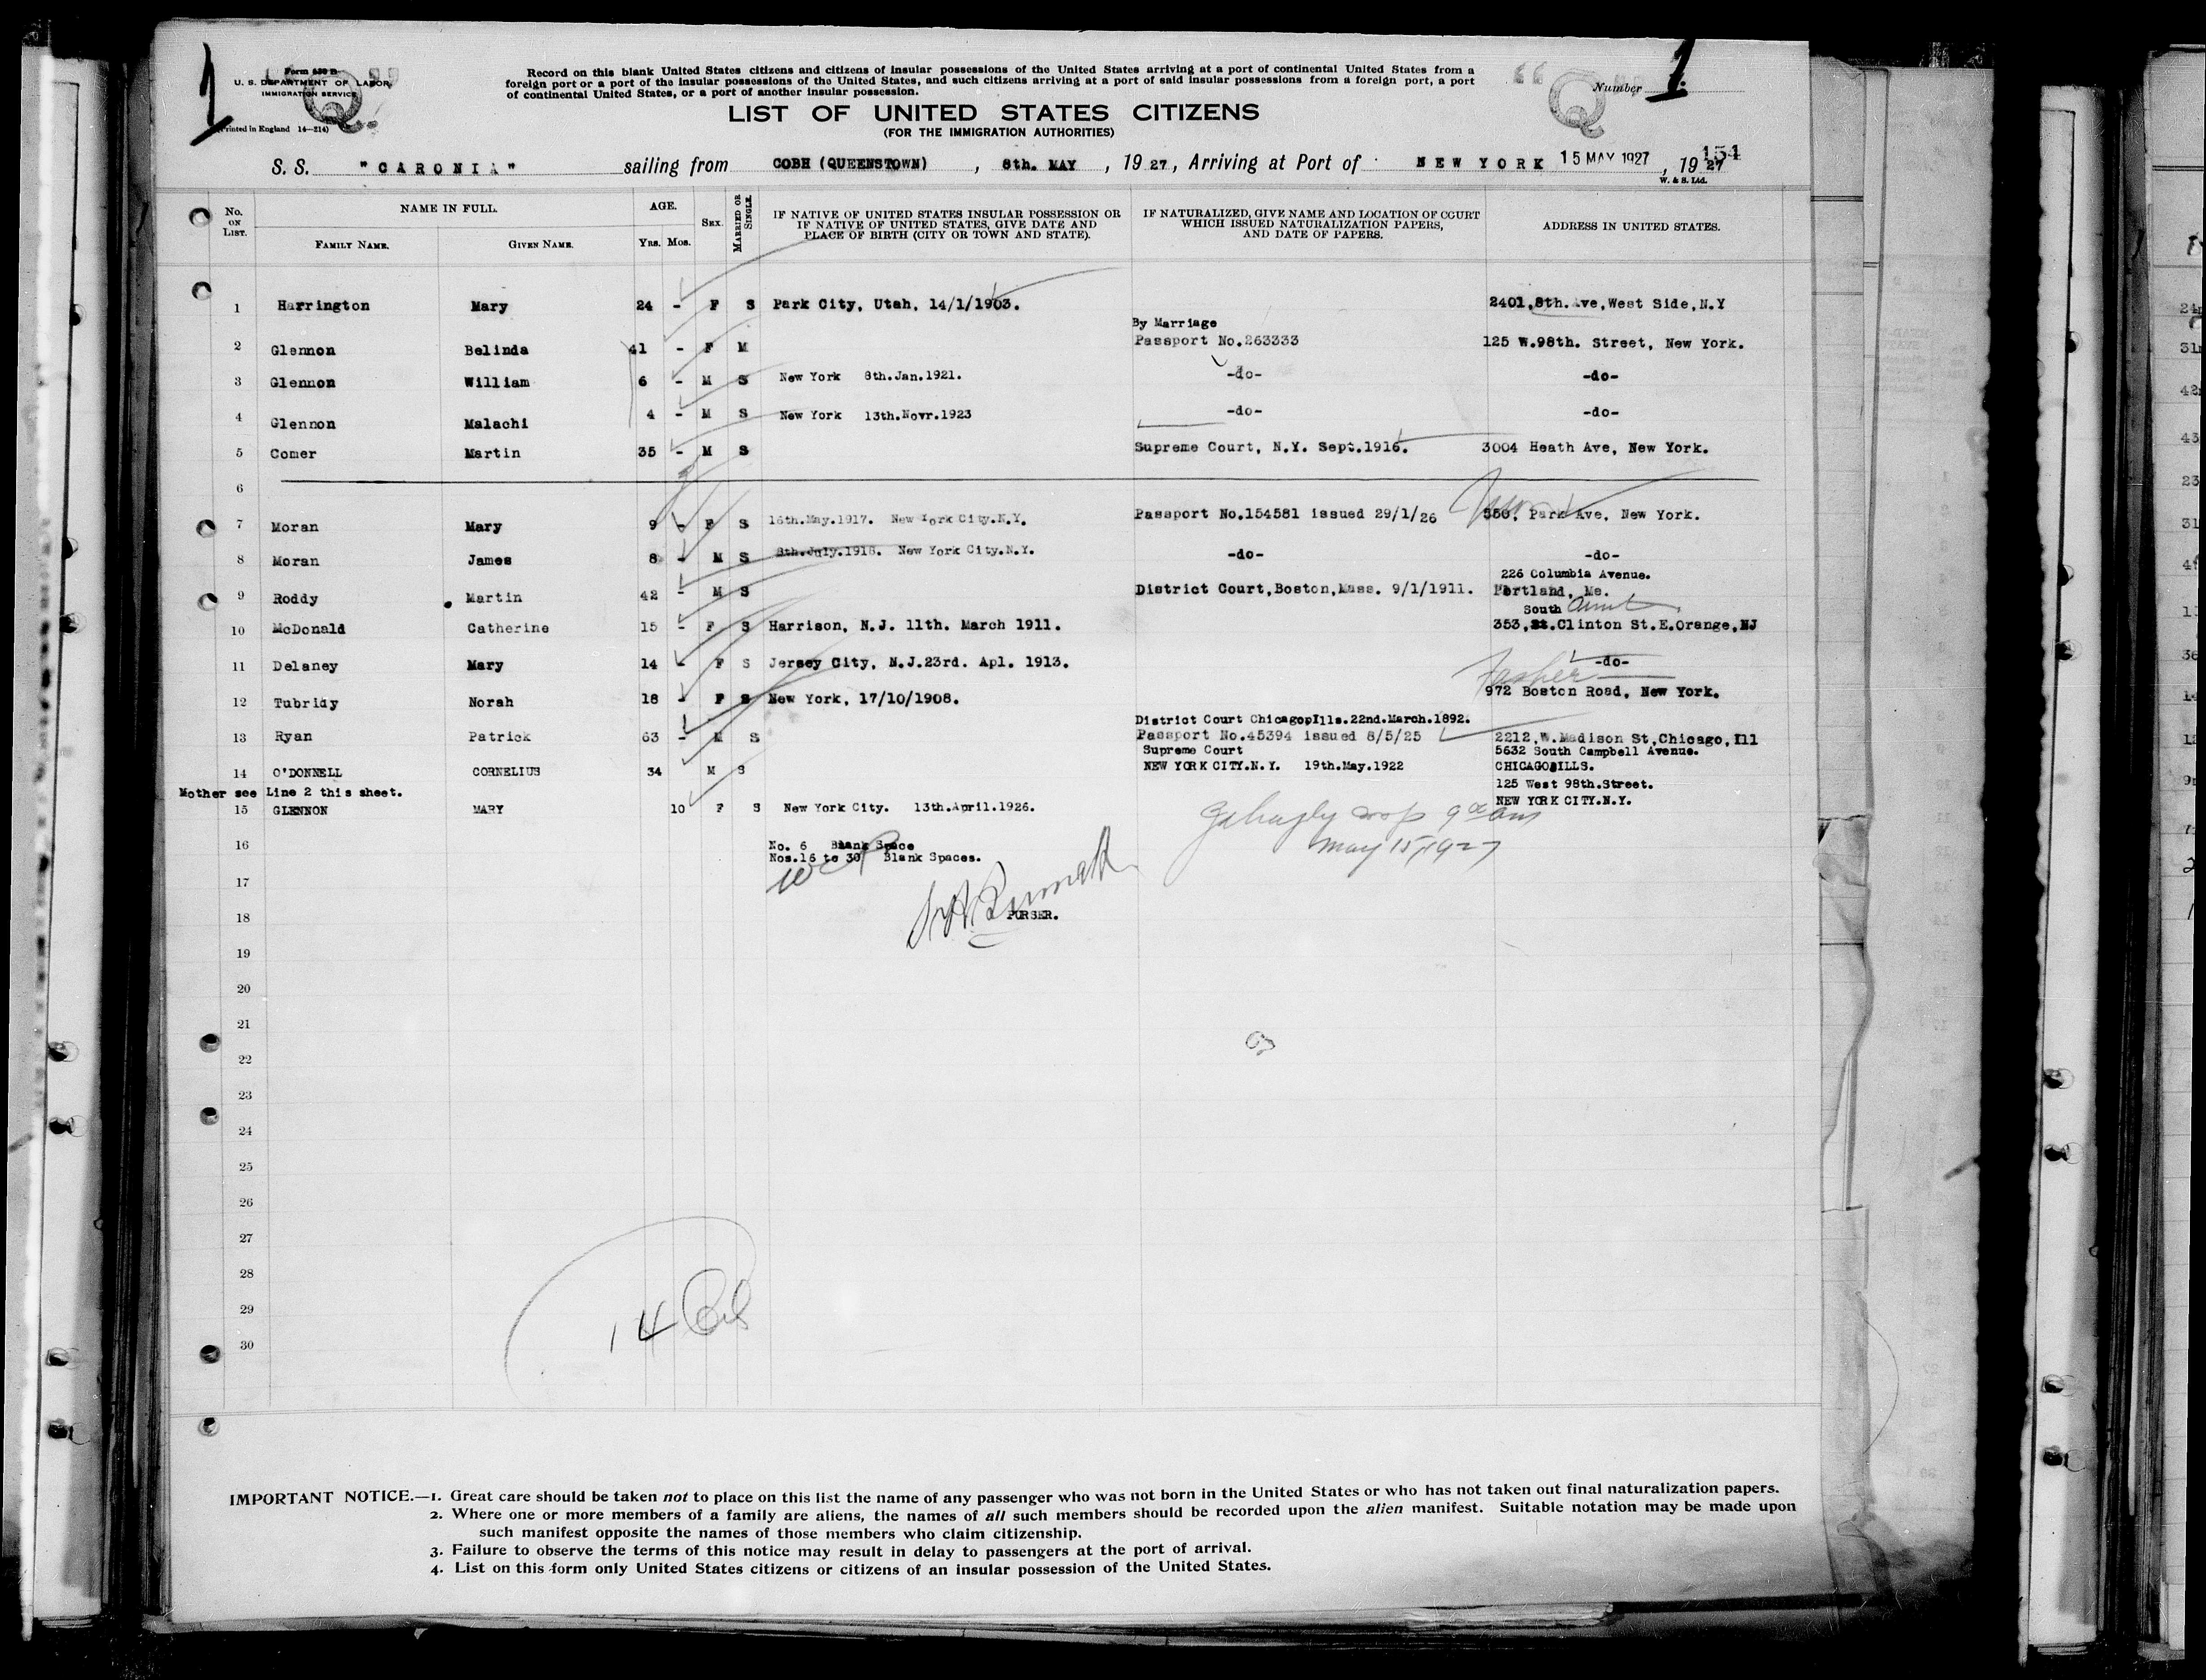 1
Form 630 B
U. S. DEPARTMENT OF LABOR,
IMMIGRATION SERVICE
(Printed in England 14—214)
"Q"
Record on this blank United States citizens and citizens of insular possessions of the United States arriving at a port of continental United States from a
foreign port or a port of the insular possessions of the United States, and such citizens arriving at a port of said insular possessions from a foreign port, a port
of continental United States, or a port of another insular possession.
LIST OF UNITED STATES CITIZENS
(FOR THE IMMIGRATION AUTHORITIES)
"Q"
Number 1
S. S. "CARONIA" sailing from COBH (QUEENSTOWN) , 8th. MAY , 19 27, Arriving at Port of NEW YORK 15 MAY 1927 , 19 27
154
W. & S. Ltd.
No. ON LIST. NAME IN FULL. AGE. SEX. MARRIED OR SINGLE. IF NATIVE OF UNITED STATES INSULAR POSSESSION OR IF NATIVE OF UNITED STATES, GIVE DATE AND PLACE OF BIRTH (CITY OR TOWN AND STATE). IF NATURALIZED, GIVE NAME AND LOCATION OF COURT WHICH ISSUED NATURALIZATION PAPERS, AND DATE OF PAPERS. ADDRESS IN UNITED STATES.
FAMILY NAME. GIVEN NAME. Yrs. Mos.
1 Harrington Mary 24 - F S Park City, Utah, 14/1/1903. 2401,8th. Ave,West Side,N.Y
By Marriage
2 Glennon Belinda 41 - F M Passport No.263333 125 W.98th. Street, New York.
3 Glennon William 6 - M S New York 8th.Jan.1921. -do- -do-
4 Glennon Malachi 4 - M S New York 13th.Novr.1923 -do- -do-
5 Comer Martin 35 - M S Supreme Court, N.Y. Sept.1916. 3004 Heath Ave, New York.
6
7 Moran Mary 9 - F S 16th.May.1917. New York City.N.Y. Passport No.154581 issued 29/1/26 550, Park Ave, New York.
8 Moran James 8 - M S 8th.July.1918. New York City.N.Y. -do- -do-
226 Columbia Avenue.
9 Roddy Martin 42 - M S District Court,Boston,Mass. 9/1/1911. Portland, Me.
South Aunt
10 McDonald Catherine 15 - F S Harrison, N.J. 11th. March 1911. 353,St.Clinton St.E.Orange,NJ
11 Delaney Mary 14 - F S Jersey City, N.J.23rd. Apl. 1913. -do-
Father
12 Tubridy Norah 18 - F S New York, 17/10/1908. 972 Boston Road, New York.
District Court Chicago,Ills.22nd.March.1892.
13 Ryan Patrick 63 - M S Passport No.45394 issued 8/5/25 2212,W.Madison St,Chicago,Ill
Supreme Court 5632 South Campbell Avenue.
14 O'DONNELL CORNELIUS 34 M S NEW YORK CITY.N.Y. 19th.May.1922 CHICAGO,ILLS.
Mother see Line 2 this sheet. 125 West 98th.Street.
15 GLENNON MARY 10 F S New York City. 13th.April.1926. NEW YORK CITY.N.Y.
May 15/1927
16 No. 6 Blank Space
Nos.16 to 30 Blank Spaces.
17
18 PURSER.
19
20
21
22
23
24
25
26
27
28
29
30
14
IMPORTANT NOTICE.—1. Great care should be taken not to place on this list the name of any passenger who was not born in the United States or who has not taken out final naturalization papers.
2. Where one or more members of a family are aliens, the names of all such members should be recorded upon the alien manifest. Suitable notation may be made upon
such manifest opposite the names of those members who claim citizenship.
3. Failure to observe the terms of this notice may result in delay to passengers at the port of arrival.
4. List on this form only United States citizens or citizens of an insular possession of the United States.